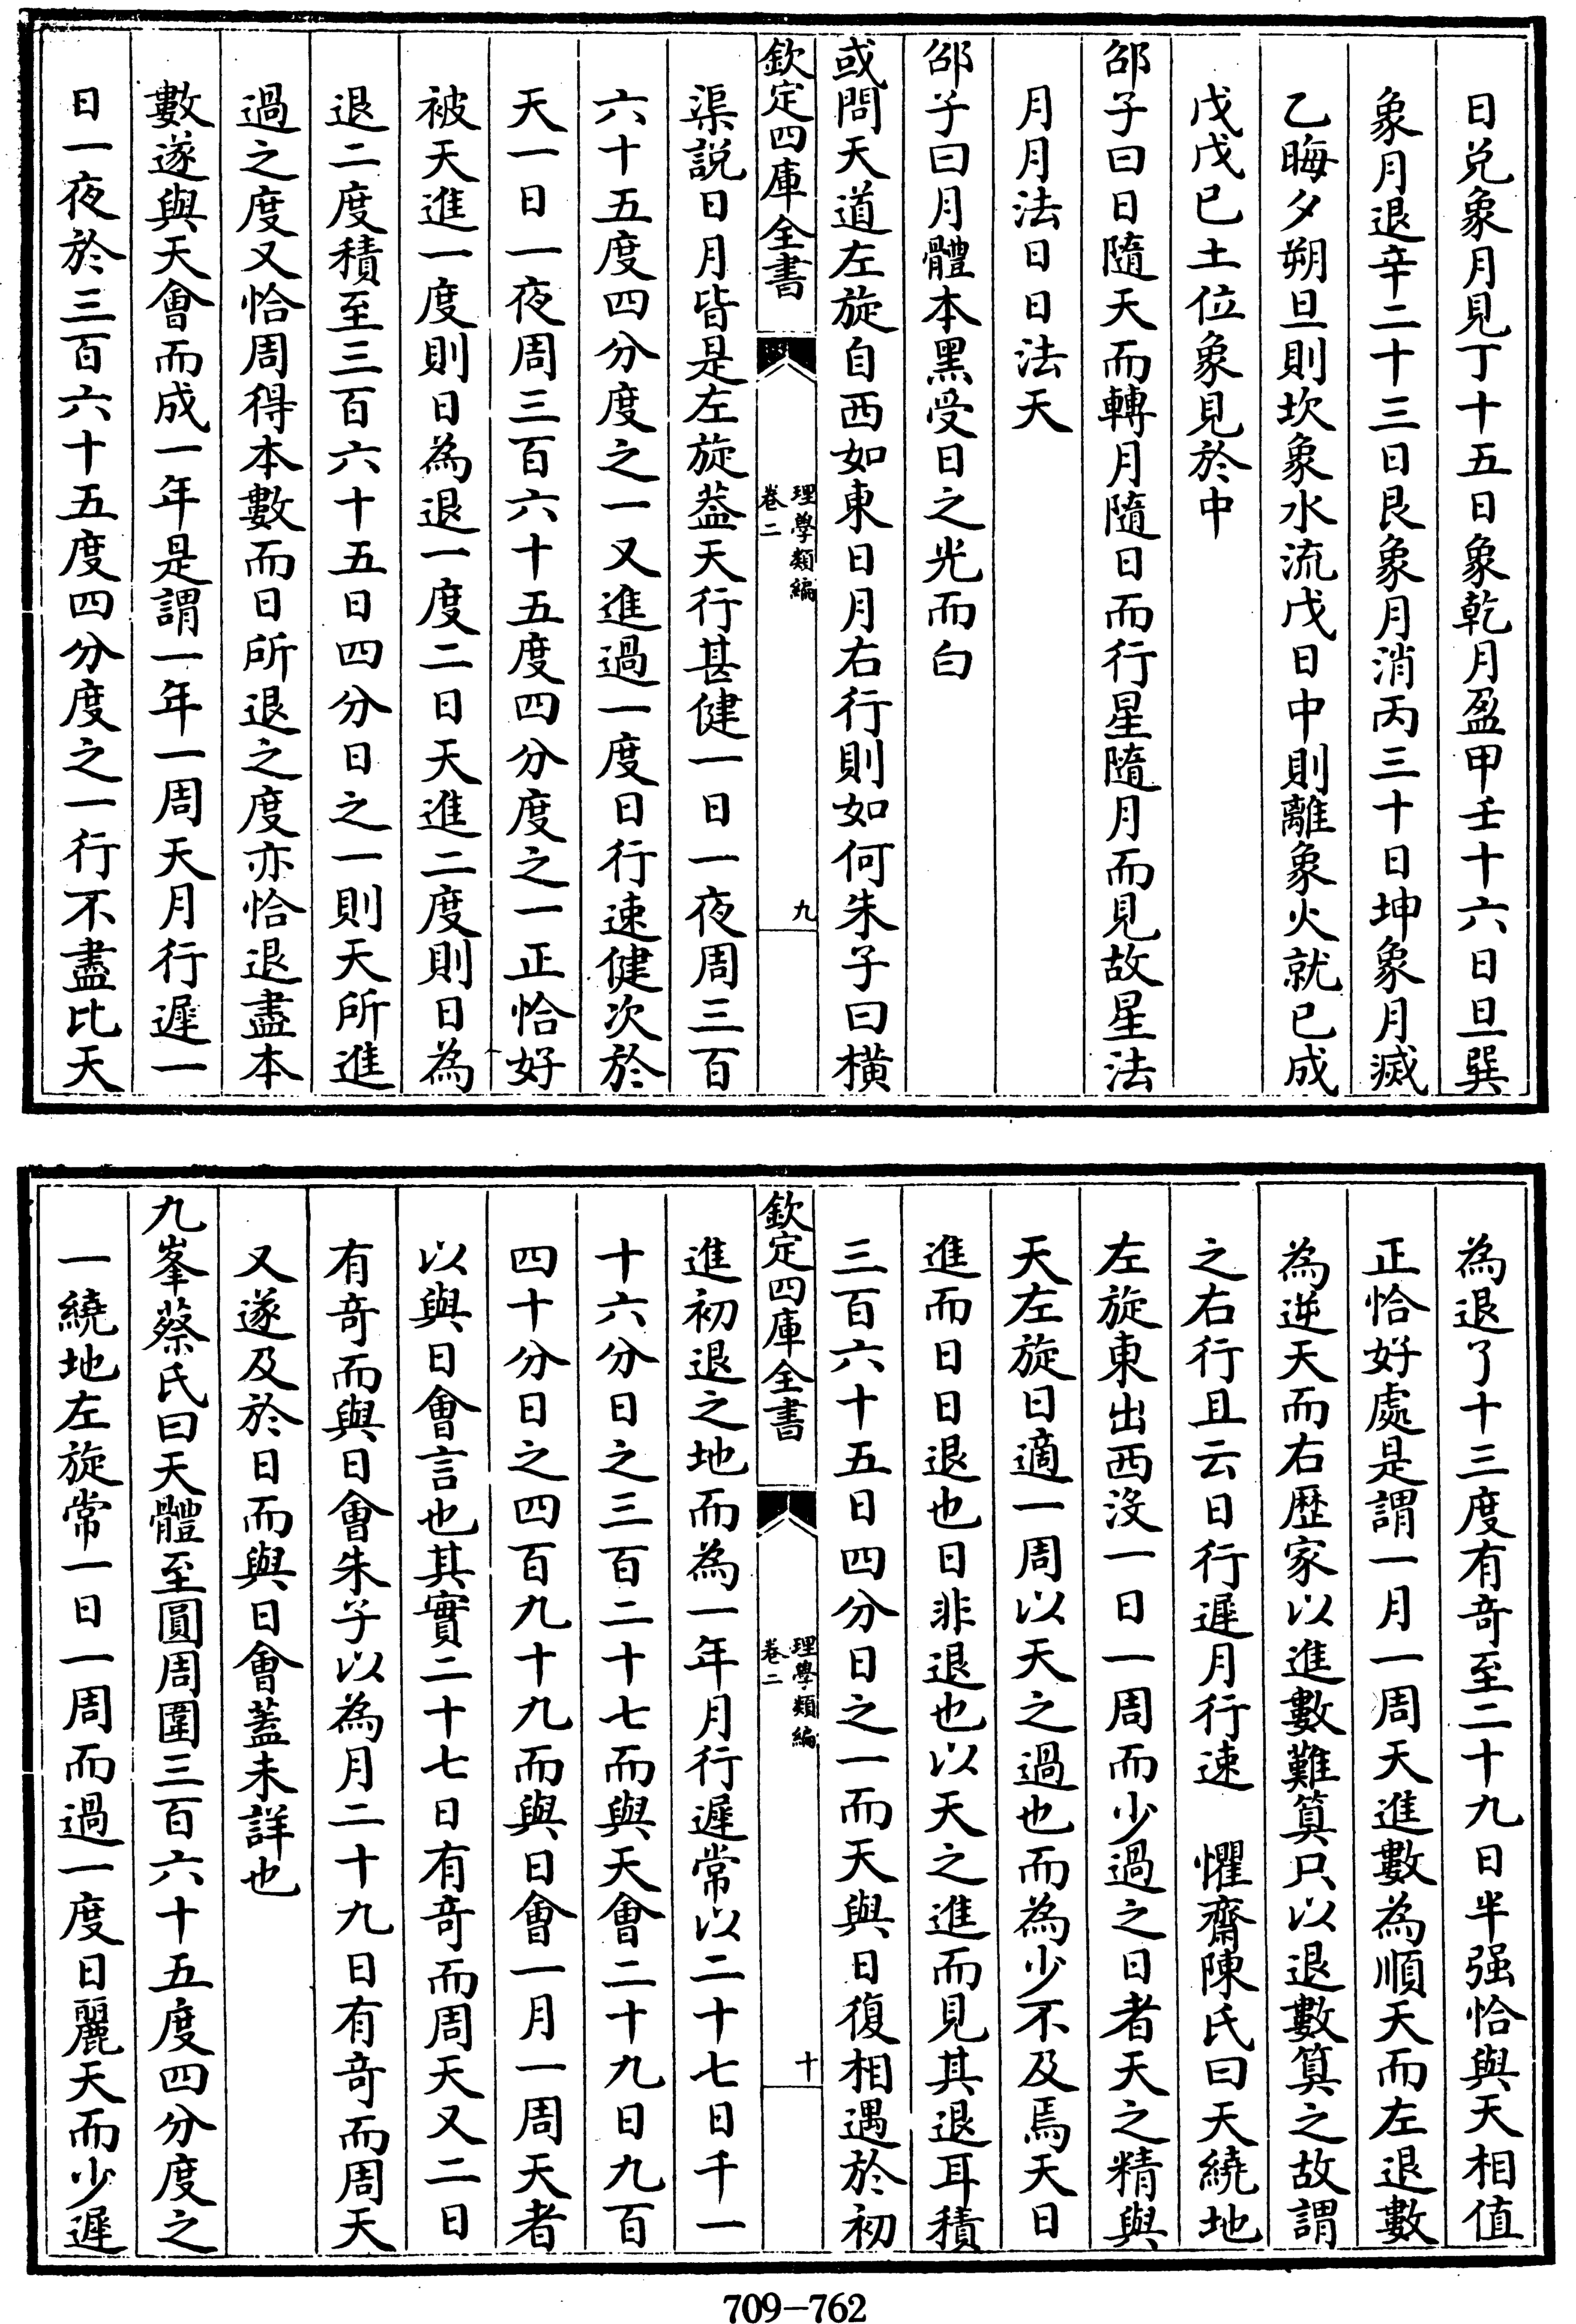 日兑象月見丁十五日象乾月盈甲壬十六日旦巽
象月退辛二十三日艮象月消丙三十日坤象月滅
乙晦夕朔旦則坎象水流戊日中則離象火就已成
戊戊已土位象見於中
邵子曰日隨天而轉月隨日而行星隨月而見故星法
月月法日日法天
邵子曰月體本黑受日之光而白
或問天道左旋自西如東日月右行則如何朱子曰橫
欽定四庫全書
理學類編
卷二
九
渠説日月皆是左旋葢天行甚健一日一夜周三百
六十五度四分度之一又進過一度日行速健次於
天一日一夜周三百六十五度四分度之一正恰好
被天進一度則日為退一度二日天進二度則日為
退二度積至三百六十五日四分日之一則天所進
過之度又恰周得本數而日所退之度亦恰退盡本
數遂與天會而成一年是謂一年一周天月行遲一
日一夜於三百六十五度四分度之一行不盡比天
為退了十三度有竒至二十九日半强恰與天相值
正恰好處是謂一月一周天進數為順天而左退數
為逆天而右歷家以進數難算只以退數算之故謂
之右行且云日行遲月行速　懼齋陳氏曰天繞地
左旋東出西沒一日一周而少過之日者天之精與
天左旋日適一周以天之過也而為少不及焉天日
進而日日退也日非退也以天之進而見其退耳積
三百六十五日四分日之一而天與日復相遇於初
欽定四庫全書
理學類編
卷二
十
進初退之地而為一年月行遲常以二十七日千一
十六分日之三百二十七而與天會二十九日九百
四十分日之四百九十九而與日會一月一周天者
以與日會言也其實二十七日有竒而周天又二日
有竒而與日會朱子以為月二十九日有竒而周天
又遂及於日而與日會蓋未詳也
九峯蔡氏曰天體至圓周圍三百六十五度四分度之
一繞地左旋常一日一周而過一度日麗天而少遲
709-762